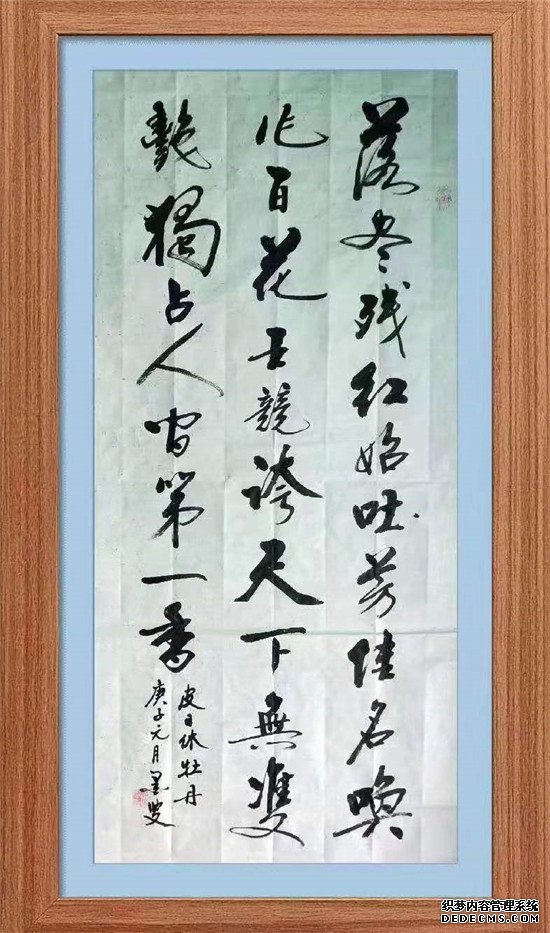 落尽残红始吐芳佳名唤
作百花王競誇天下無雙
艷獨占人间第一香
皮日休牡丹
庚子元月墨叟
织梦内容管理系统
DEDECMS.COM